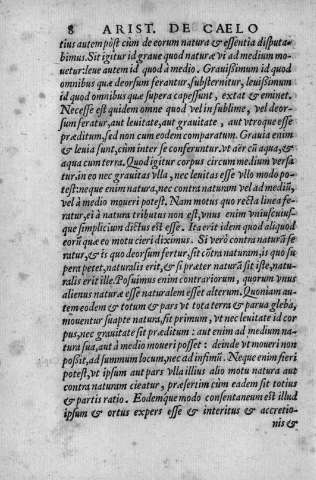 8 ARIST. DE CAELO
tius autem póst cùm de eorum natura & essentia disputa-
bimus. Sit igitur id graue quod naturæ vi ad medium mo-
uetur: leue autem id quod à medio. Grauissimum id quod
omnibus quæ deorsum ferantur, substernitur, leuissimum
id quod omnibus quæ supera capessunt, extat & eminet.
Necesse est quidem omne quod vel in sublime, vel deor-
sum feratur, aut leuitate, aut grauitate, aut vtroque esse
præditum, sed non cum eodem comparatum. Grauia enim
& leuia sunt, cùm inter se conferuntur. vt aër cũ aqua, &
aqua cum terra. Quod igitur corpus circum medium versa
tur, in eo nec grauitas vlla, nec leuitas esse vllo modo po-
test: neque enim natura, nec contra naturam vel ad mediũ,
vel à medio moueri potest. Nam motus quo recta linea fe-
ratur, ei à natura tributus non est, vnus enim vniuscuius-
que simplicium dictus est esse. Ita erit idem quod aliquod
eorũ quæ eo motu cieri diximus. Si verò contra naturã fe
ratur, & is quo deorsum fertur, sit cõtra naturam, is quo su
pera petet, naturalis erit, & si præter naturã sit iste, natu-
ralis erit ille. Posuimus enim contrariorum, quorum vnus
alienus naturæ esse naturalem esset alterum. Quoniam au-
tem eodem & totum & pars vt tota terra & parua gleba,
mouentur suapte natura, sit primum, vt nec leuitate id cor
pus, nec grauitate sit præditum: aut enim ad medium na-
tura sua, aut à medio moueri posset: deinde vt moueri non
possit, ad summum locum, nec ad infimũ. Neque enim fieri
potest, vt ipsum aut pars vlla illius alio motu natura aut
contra naturam cieatur, præsertim cùm eadem sit totius
& partis ratio. Eodemque modo consentaneum est illud
ipsum & ortus expers esse & interitus & accretio-
nis &